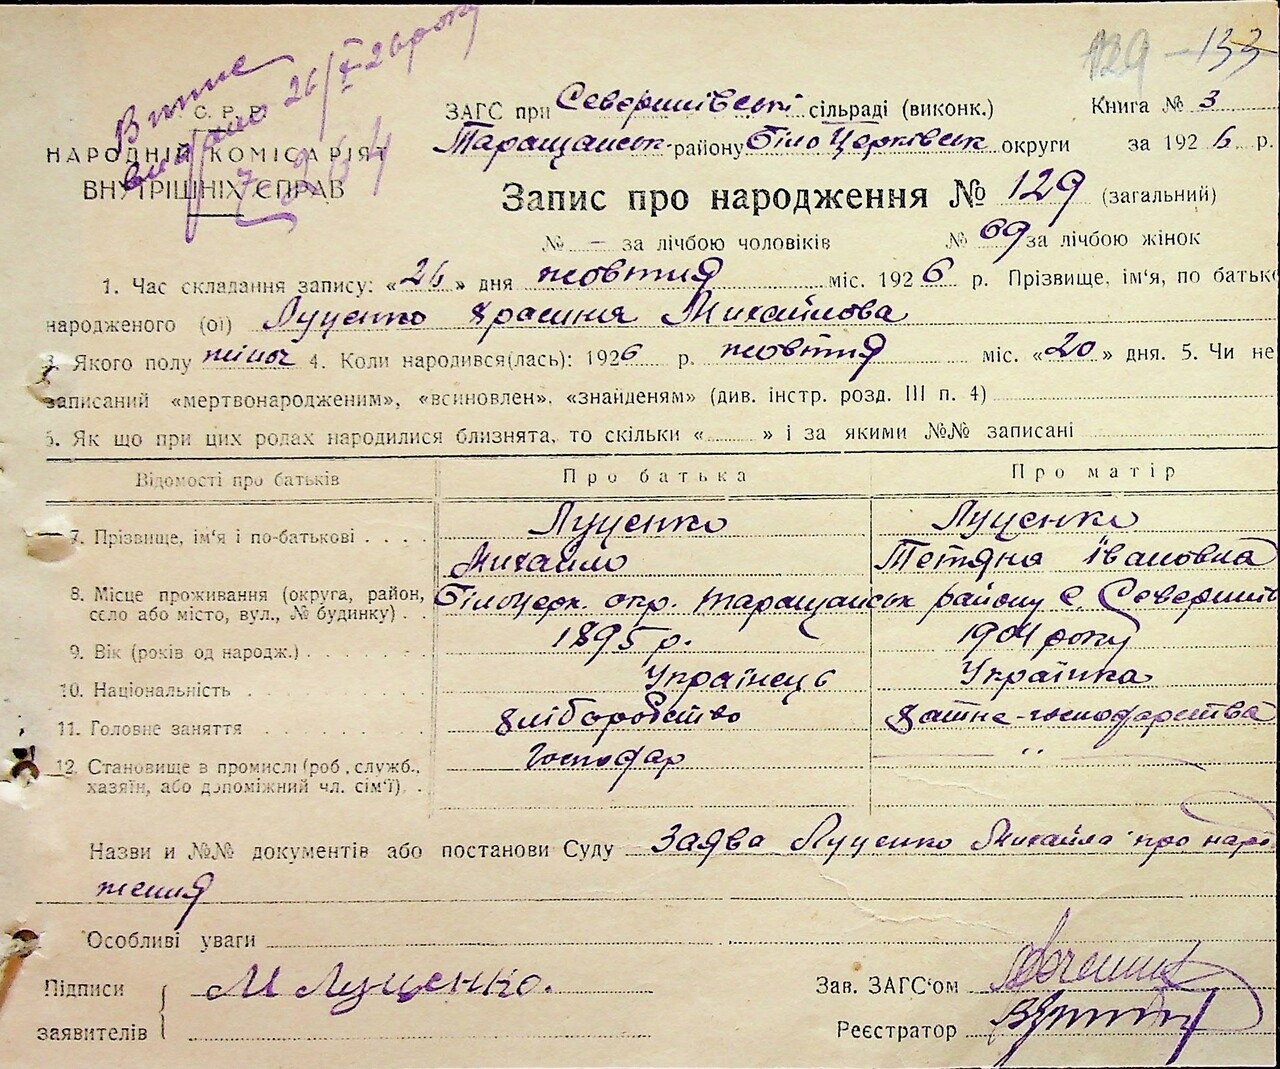 129 — 133
Витяг
видано 26/X 26 року
7264
С. Р. Р.
НАРОДНІЙ КОМІСАРІЯТ
ВНУТРІШНІХ СПРАВ
ЗАГС при Северинівській сільраді (виконк.)
Книга № 3
Таращанськ району Біло Церківськ округи
за 1926 р.
Запис про народження № 129 (загальний)
№ — за лічбою чоловіків № 69 за лічбою жінок
1. Час складання запису: «26» дня жовтня міс. 1926 р. Прізвище, ім'я, по батьков
народженого (ої) Луценко Михайлова
3. Якого полу жіноч 4. Коли народився(лась): 1926 р. жовтня міс. «20» дня. 5. Чи не
записаний «мертвонародженим», «всиновлен», «знайденям» (див. інстр. розд. III п. 4)
6. Як що при цих родах народилися близнята, то скільки « » і за якими №№ записані
Відомості про батьків Про батька Про матір
7. Прізвище, ім'я і по-батькові Луценко Луценко
Михайло Тетяна Івановна
8. Місце проживання (округа, район, село або місто, вул., № будинку) Білоцерк. окр. Таращанськ району с. Северинів
9. Вік (років од народж.) 1895 р. 1904 року
10. Національність Українець Українка
11. Головне заняття хліборобство хатнє-господарства
12. Становище в промислі (роб., служб., Господар "
хазяїн, або допоміжний чл. сім'ї)
Назви и №№ документів або постанови Суду Заява Луценко Михайла про наро
ження
Особливі уваги
Підписи М Луценко. Зав. ЗАГС'ом
заявителів Реєстратор